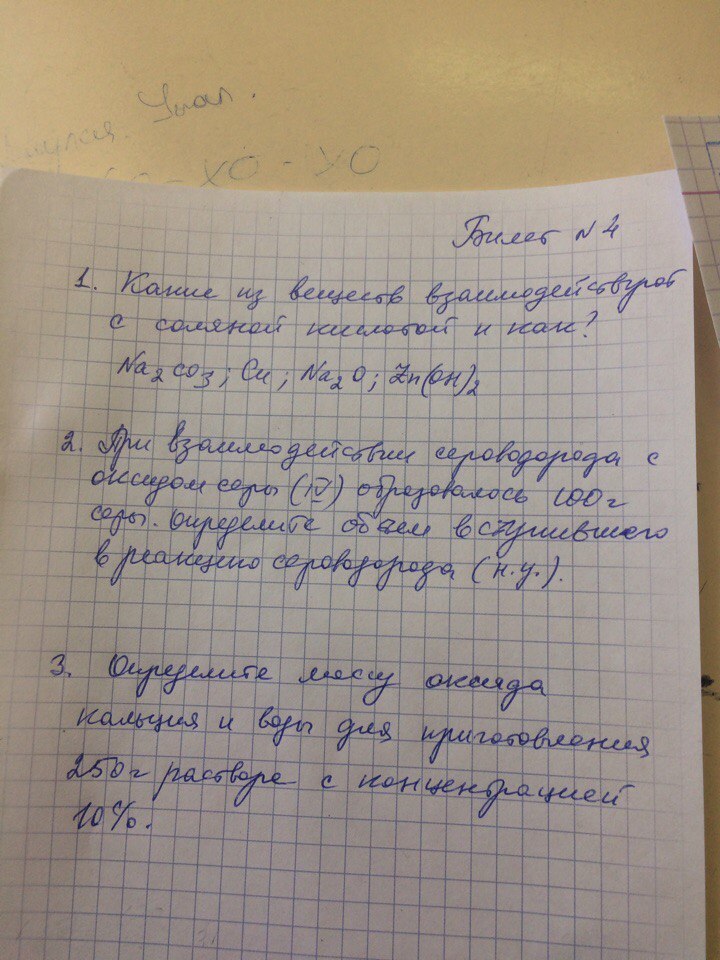 Упал.
- ХО - УО
Билет № 4
1. Какие из веществ взаимодействуют
с соляной кислотой и как?
Na2CO3; Cu; Na2O; Zn(OH)2
2. При взаимодействии сероводорода с
оксидом серы (IV) образовалось 100г
серы. Определите объем вступившего
в реакцию сероводорода (н.у.).
3. Определите массу оксида
кальция и воды для приготовления
250г раствора с концентрацией
10%.